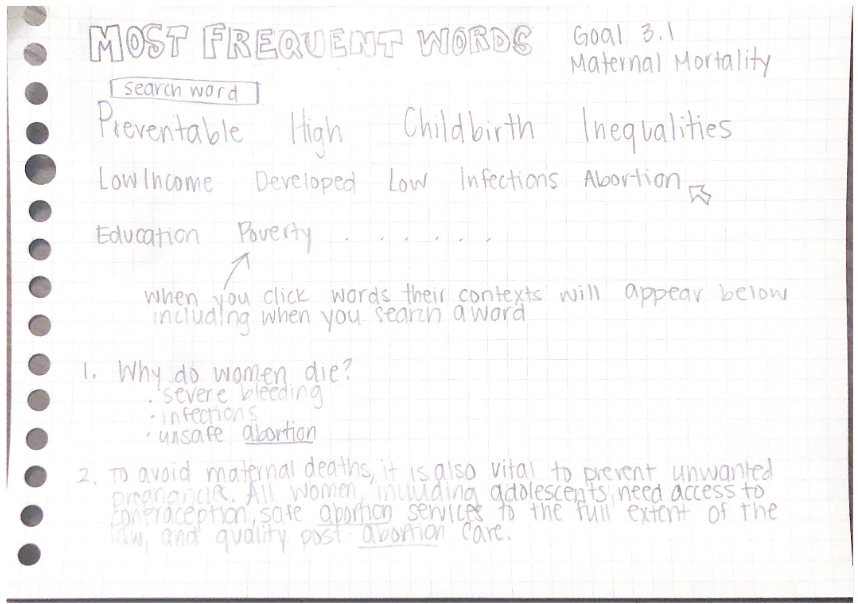 MOST FREQUENT WORDS
Goal 3.1
Maternal Mortality
search word
Preventable High Childbirth Inequalities
Low Income Developed Low Infections Abortion
Education Poverty . . . . . .
when you click words their contexts will appear below
including when you search a word
1. Why do women die?
· severe bleeding
· infections
· unsafe abortion
2. To avoid maternal deaths, it is also vital to prevent unwanted
pregnancies. All women, including adolescents, need access to
contraception, safe abortion services to the full extent of the
law, and quality post-abortion care.